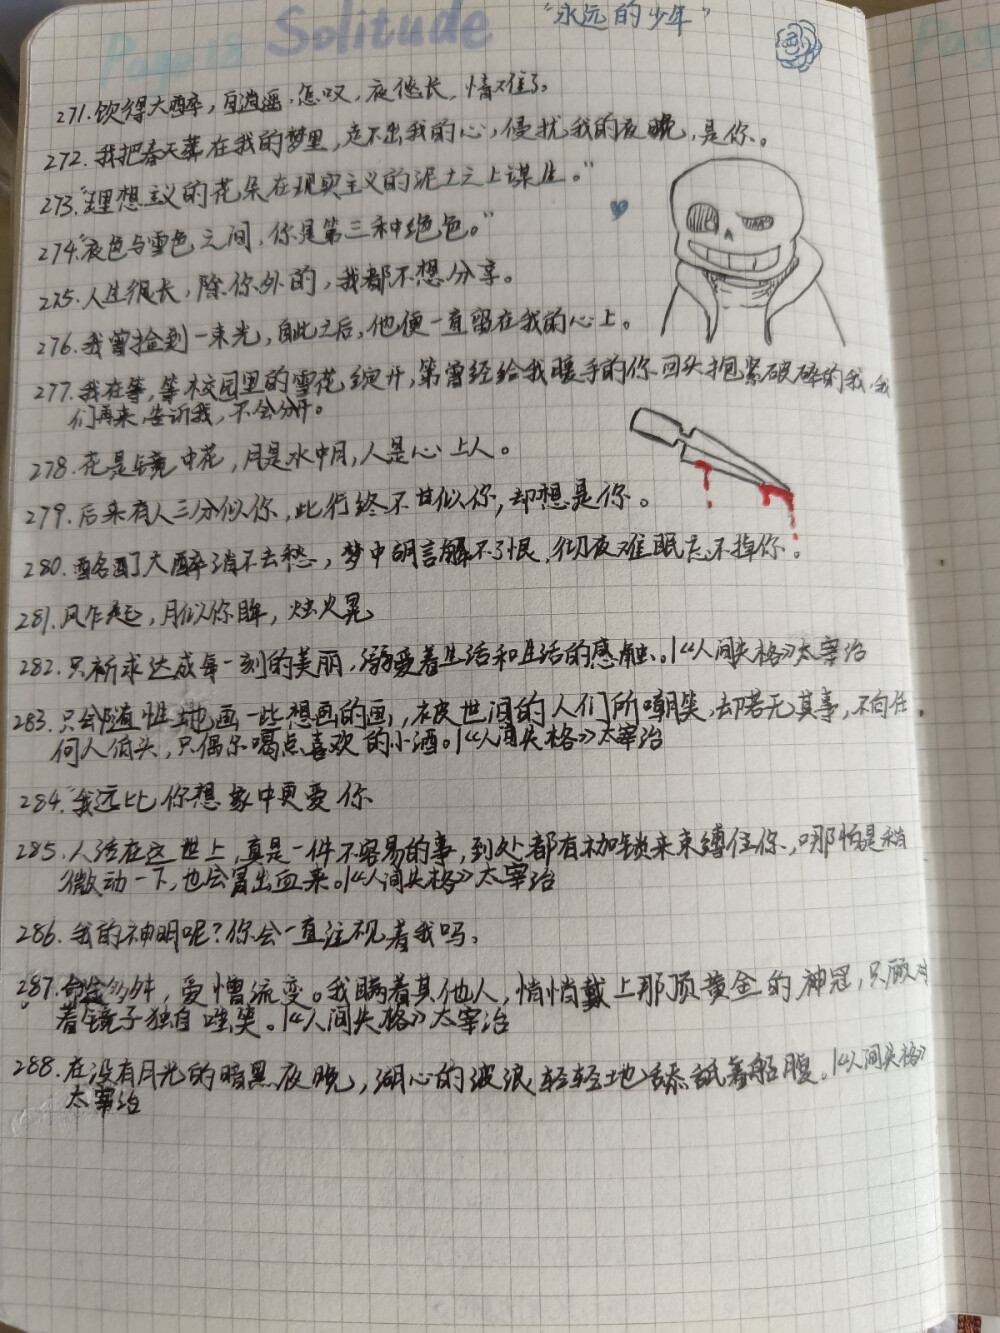 Page 18 Solitude "永远的少年"
271.饮得大醉,自逍遥,怎叹,夜悠长,情难了。
272.我把春天葬在我的梦里,走不出我的心,侵扰我的夜晚,是你。
273."理想主义的花朵在现实主义的泥土之上谋生。"
274."夜色与雪色之间,你是第三种绝色。"
275.人生很长,除你外的,我都不想分享。
276.我曾捡到一束光,自此之后,他便一直留在我的心上。
277.我在等,等校园里的雪花绽开,等曾经给我暖手的你回头抱紧破碎的我,我
们再来,告诉我,不会分开。
278.花是镜中花,月是水中月,人是心上人。
279.后来有人三分似你,此行终不甘似你,却想是你。
280.酩酊大醉消不去愁,梦中胡言解不了恨,彻夜难眠忘不掉你。
281.风乍起,月似你眸,烛火晃
282.只祈求达成每一刻的美丽,溺爱着生活和生活的感触。|《人间失格》太宰治
283.只会随性地画一些想画的画,被世间的人们所嘲笑,却若无其事,不向任
何人低头,只偶尔喝点喜欢的小酒。|《人间失格》太宰治
284."我远比你想象中更爱你
285.人活在这世上,真是一件不容易的事,到处都有枷锁来束缚住你,哪怕是稍
微动一下,也会冒出血来。|《人间失格》太宰治
286.我的神明呢?你会一直注视着我吗,
287.命途多舛,爱憎流变。我瞒着其他人,悄悄戴上那顶黄金的神冠,只顾对
着镜子独自嗤笑。|《人间失格》太宰治
288.在没有月光的暗黑夜晚,湖心的波浪轻轻地舔舐着船腹。|《人间失格》
太宰治